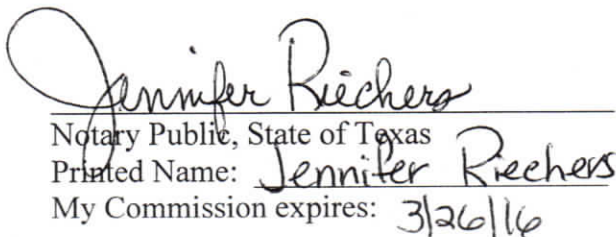 Jennifer Riechers
Notary Public, State of Texas
Printed Name: Jennifer Riechers
My Commission expires: 3/26/16